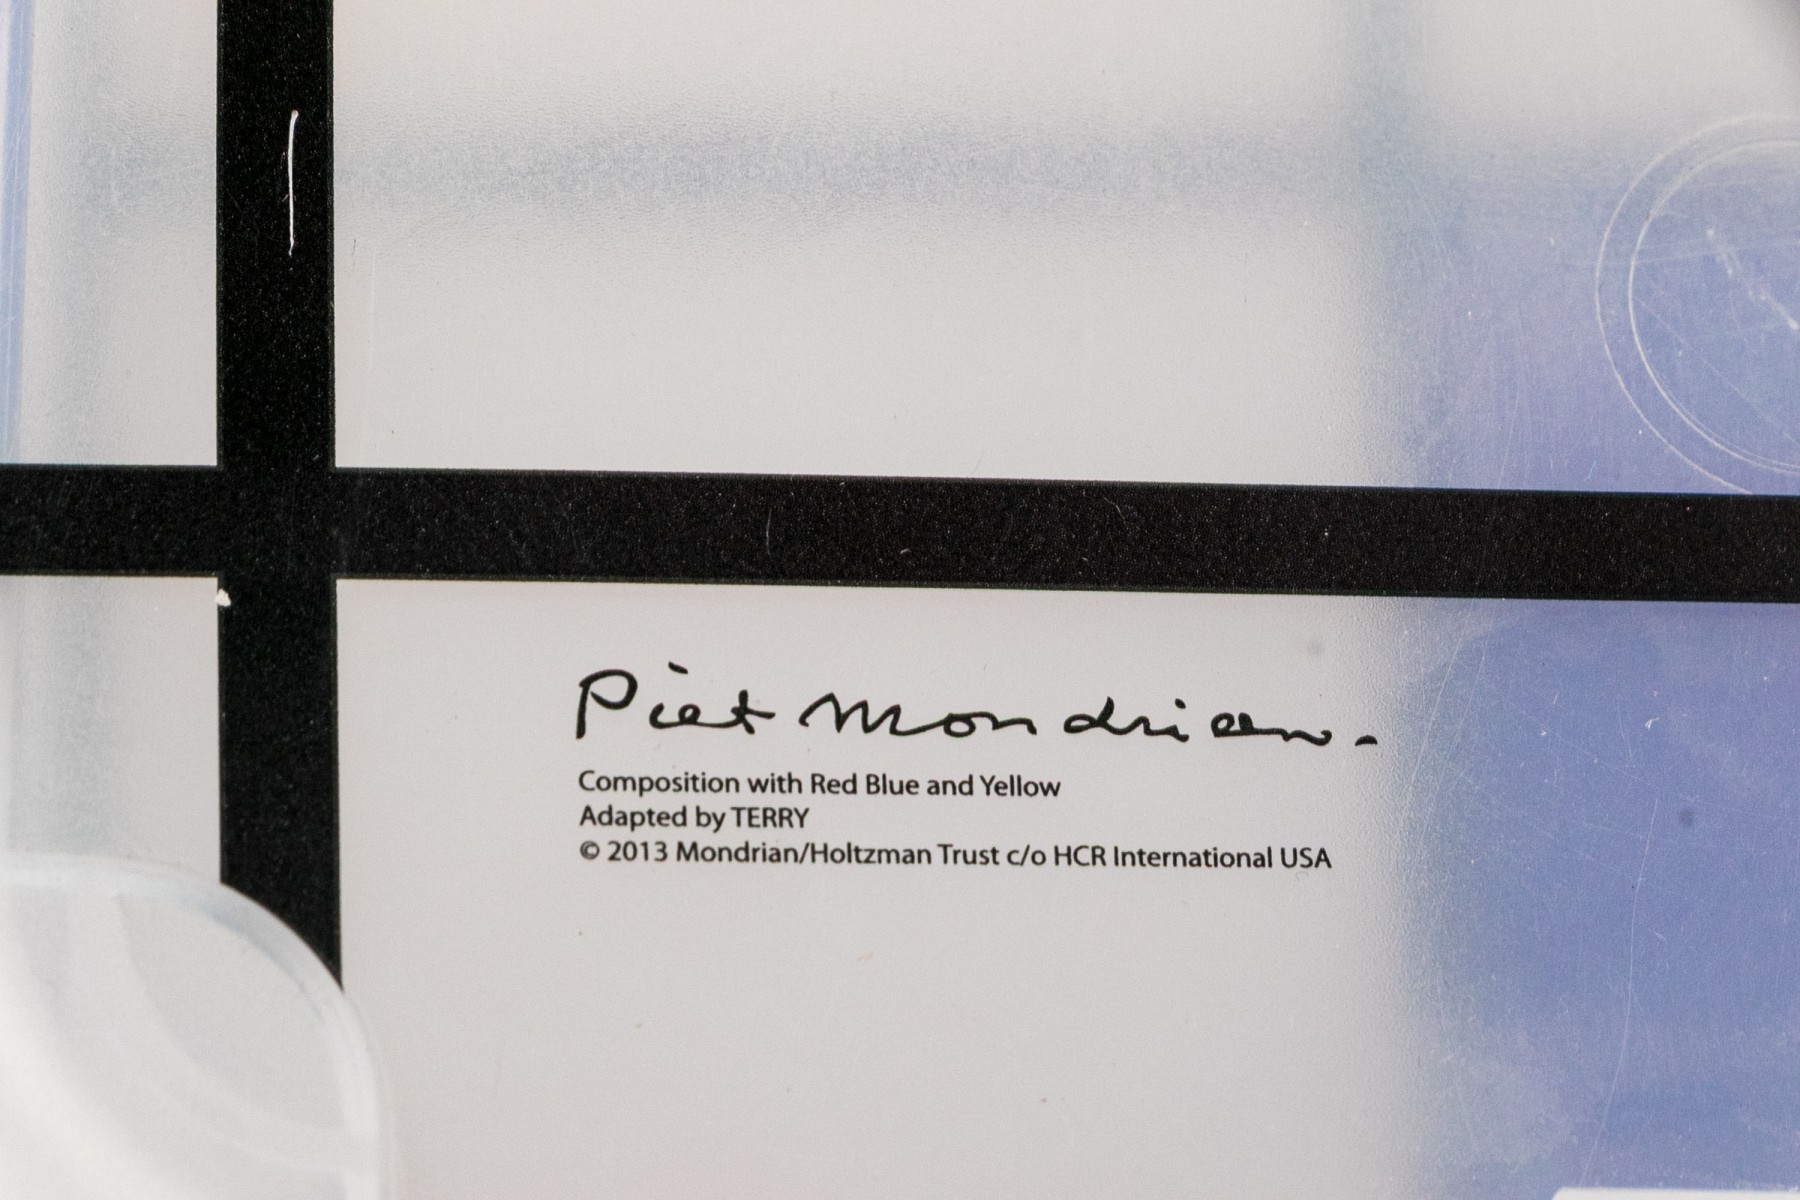 Piet Mondrian.
Composition with Red Blue and Yellow
Adapted by TERRY
© 2013 Mondrian/Holtzman Trust c/o HCR International USA